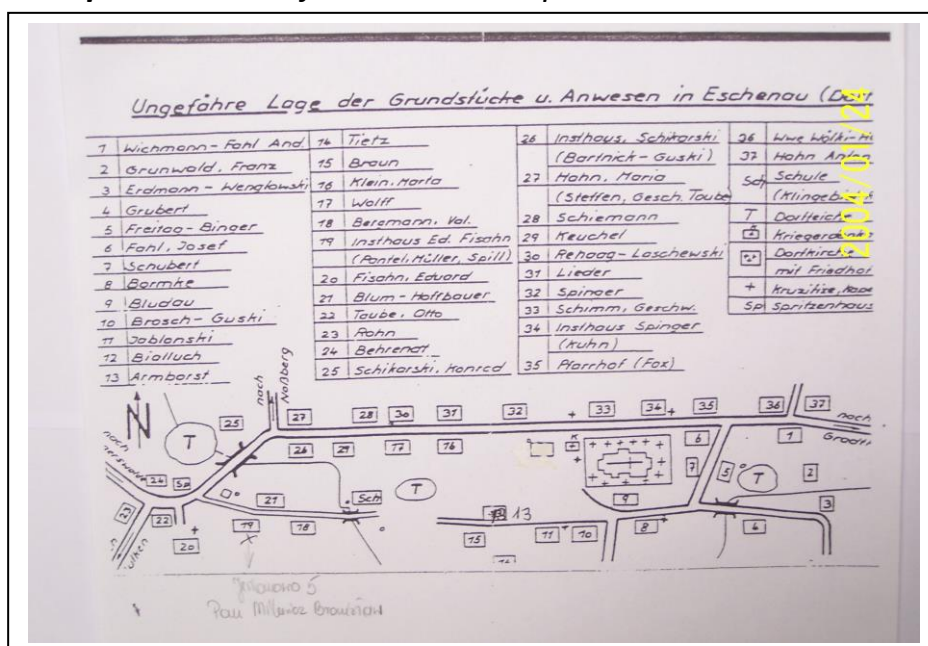 Ungefähre Lage der Grundstücke u. Anwesen in Eschenau
1 Wichmann - Fahl And.
2 Grunwald, Franz
3 Erdmann - Wenglowski
4 Grubert
5 Freitag - Binger
6 Fahl, Josef
7 Schubert
8 Bormke
9 Bludau
10 Brosch - Guski
11 Jablonski
12 Bialluch
13 Armborst
14 Tietz
15 Braun
16 Klein, Marta
17 Wolff
18 Bergmann, Val.
19 Insthaus Ed. Fisahn
(Pantel, Müller, Spill)
20 Fisahn, Eduard
21 Blum - Hoffbauer
22 Taube, Otto
23 Rohn
24 Behrendt
25 Schikarski, Konrad
26 Insthaus, Schikarski
(Bartnick - Guski)
27 Hahn, Maria
(Steffen, Gesch. Taube)
28 Schiemann
29 Keuchel
30 Rehaag - Laschewski
31 Lieder
32 Spinger
33 Schimm, Geschw.
34 Insthaus Spinger
(Kuhn)
35 Pfarrhof (Fox)
36 Uwe Wölki
37 Hahn
Sch Schule
T Dorfteich
K
Dorfkirche
mit Friedhof
+ Kruzifixe,
Sp Spritzenhaus
2004/01/24
N
nach
Noßberg
25 27 28 30 31 32 + 33 34 + 35 36 37
nach
T 26 29 17 16 K 6 1
nach
24 Sp 7 5 T 2
21 Sch T 9 3
23 22 19 18 13 8 4
20 15 11 10
X
5
Pan